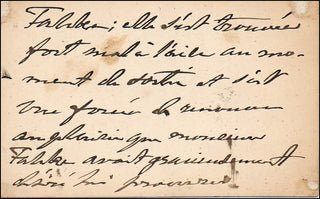 Fabbre; elle s'est trouvée
fort mal à l'aise au mo-
ment de sortir et s'est
vue forcée de renoncer
au plaisir que monsieur
Fabbre avait gracieusement
désiré lui procurer